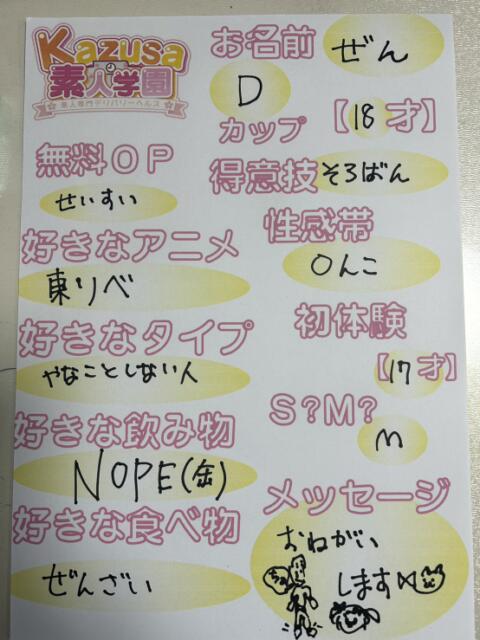 Kazusa
素人学園
☆素人専門デリバリーヘルス☆
お名前 ぜん
D
カップ 【18才】
無料OP
せいすい
得意技 そろばん
好きなアニメ
東リベ
性感帯
〇んこ
好きなタイプ
やなことしない人
初体験
【17才】
好きな飲み物
NOPE(缶)
S?M?
M
好きな食べ物
ぜんざい
メッセージ
おねがい
します